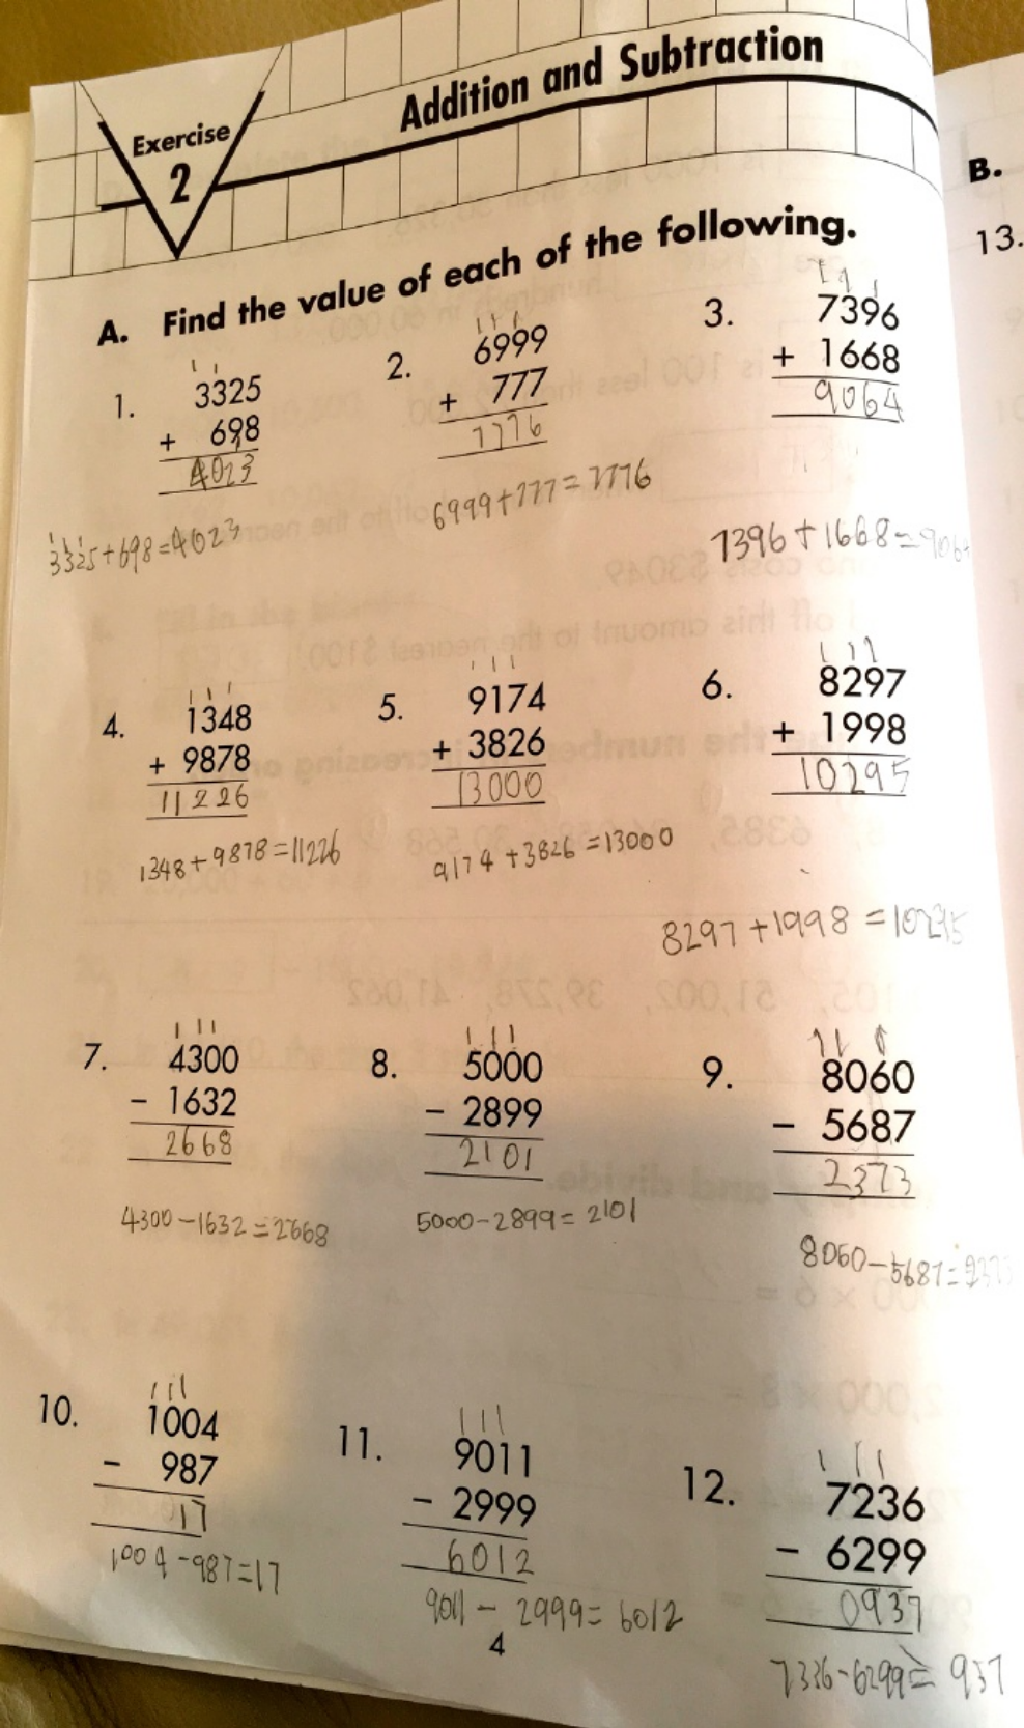 Exercise
2
Addition and Subtraction
A. Find the value of each of the following.
1 1
1. 3325
+ 698
4023
3325+698=4023
1 1 1
2. 6999
+ 777
7776
6999+777=7776
1 1 1
3. 7396
+ 1668
9064
7396+1668=9064
1 1 1
4. 1348
+ 9878
11226
1348+9878=11226
1 1 1
5. 9174
+ 3826
13000
9174+3826=13000
1 1 1
6. 8297
+ 1998
10295
8297+1998=10295
1 1 1
7. 4300
- 1632
2668
4300-1632=2668
1 1 1
8. 5000
- 2899
2101
5000-2899=2101
1 1 1
9. 8060
- 5687
2373
8060-5687=2373
1 1 1
10. 1004
- 987
017
1004-987=17
1 1 1
11. 9011
- 2999
6012
9011-2999=6012
1 1 1
12. 7236
- 6299
0937
7336-6299=937
4
B.
13.